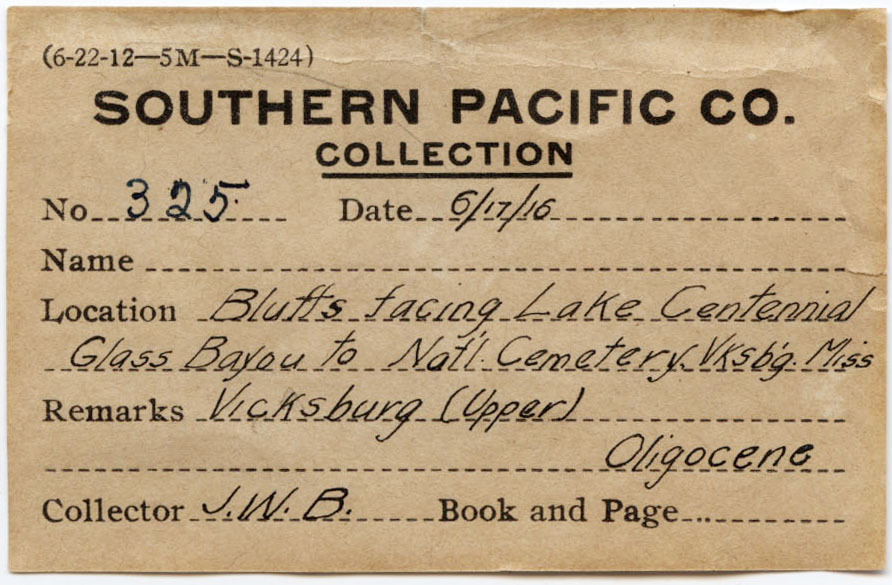 (6-22-12—5M—S-1424)
SOUTHERN PACIFIC CO.
COLLECTION
No 325 Date 6/17/16
Name
Location Bluffs facing Lake Centennial
Glass Bayou to Nat'l. Cemetery. Vksb'g. Miss
Remarks Vicksburg (Upper)
Oligocene
Collector J.W.B. Book and Page